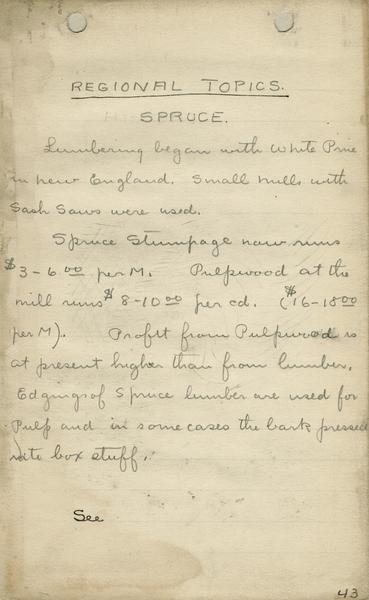 REGIONAL TOPICS.
SPRUCE.
Lumbering began with White Pine
in New England. Small mills with
Sash Saws were used.
Spruce Stumpage now runs
$3-6.00 per M. Pulpwood at the
mill runs $8-10.00 per cd. ($16-18.00
per M). Profit from Pulpwood is
at present higher than from lumber.
Edgings of Spruce lumber are used for
Pulp and in some cases the bark pressed
into box stuff.
See
43